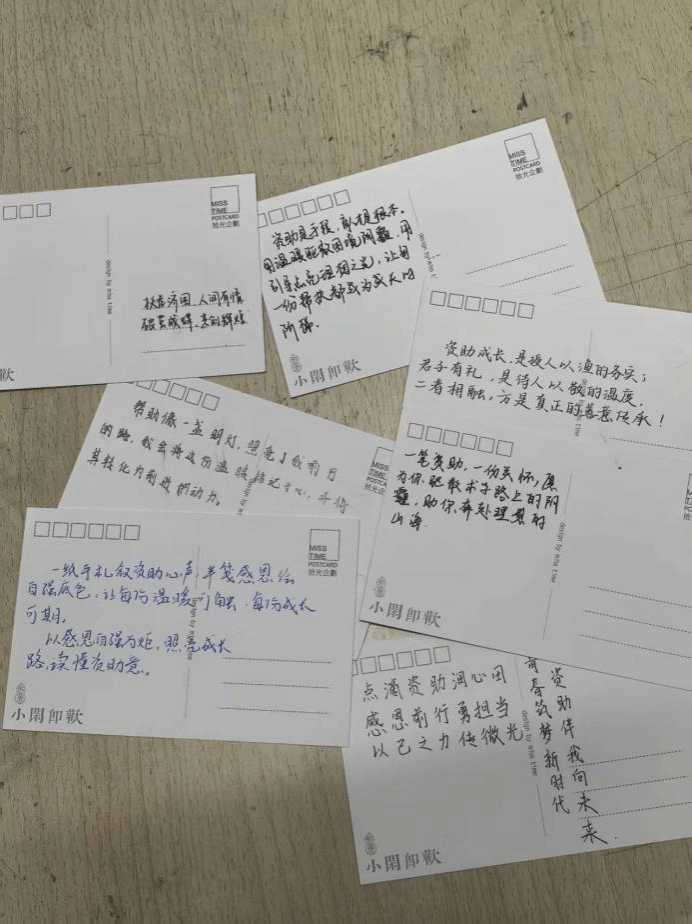 MISS
TIME
POSTCARD
拾光企劃
design by miss time
扶危济困,人间有情
破茧成蝶,走向辉煌
欢
MISS
TIME
POSTCARD
拾光企劃
资助是手段,育人是根本。
用温暖驱散困境阴霾,用
引导点亮理想之光,让每
一份帮扶都成为成长的
阶梯.
小閑即歡
资助成长,是授人以渔的务实;
君子有礼,是待人以敬的温度,
二者相融,方是真正的善意传承!
帮助像一盏明灯,照亮了我前行
的路,我会将这份温暖铭记于心,并将
其转化为前进的动力。
一笔资助,一份关怀,愿
为你驱散求学路上的阴
霾,助你奔赴理想的
山海.
design by miss time
小閑即歡
MISS
TIME
POSTCARD
拾光企劃
一纸手札叙资助心声,半笺感恩绘
自强底色,让每份温暖可触,每份成长
可期。
以感恩自强为炬,照亮成长
路,读懂资助意。
design by miss time
小閑即歡
点滴资助润心田
感恩前行勇担当
以己之力传微光
资助伴我向未来.
青春筑梦新时代
design by miss time
小閑即歡